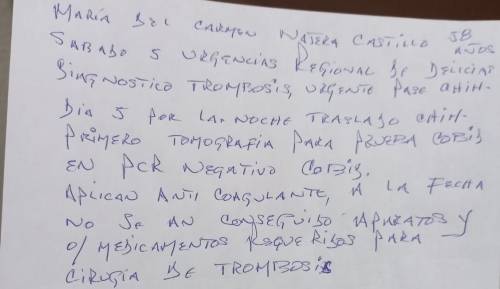 MARÍA DEL CARMEN NAJERA CASTILLO 58 AÑOS
SABADO 5 URGENCIAS REGIONAL DE DELICIAS
DIAGNOSTICO TROMBOSIS, URGENTE PASE CHIH-
DIA 5 POR LA NOCHE TRASLADO CHIH-
PRIMERO TOMOGRAFIA PARA PRUEBA COBID
EN PCR NEGATIVO COBID.
APLICAN ANTI COAGULANTE, A LA FECHA
NO SE AN CONSEGUIDO APARATOS Y
O/ MEDICAMENTOS REQUERIDOS PARA
CIRUGIA DE TROMBOSIS